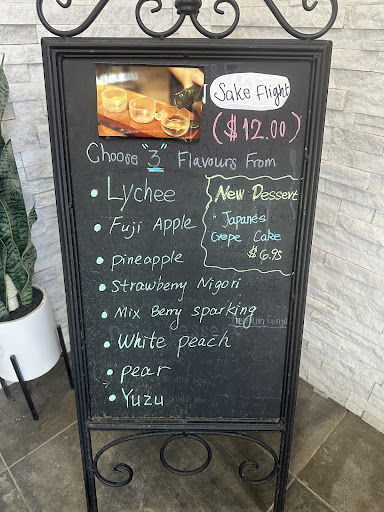 Sake Flight
($12.00)
Choose "3" Flavours From
• Lychee
• Fuji Apple
• pineapple
• Strawberry Nigori
• Mix Berry sparking
• White peach
• pear
• Yuzu
New Dessert
• Japanes
Crepe Cake
$6.95